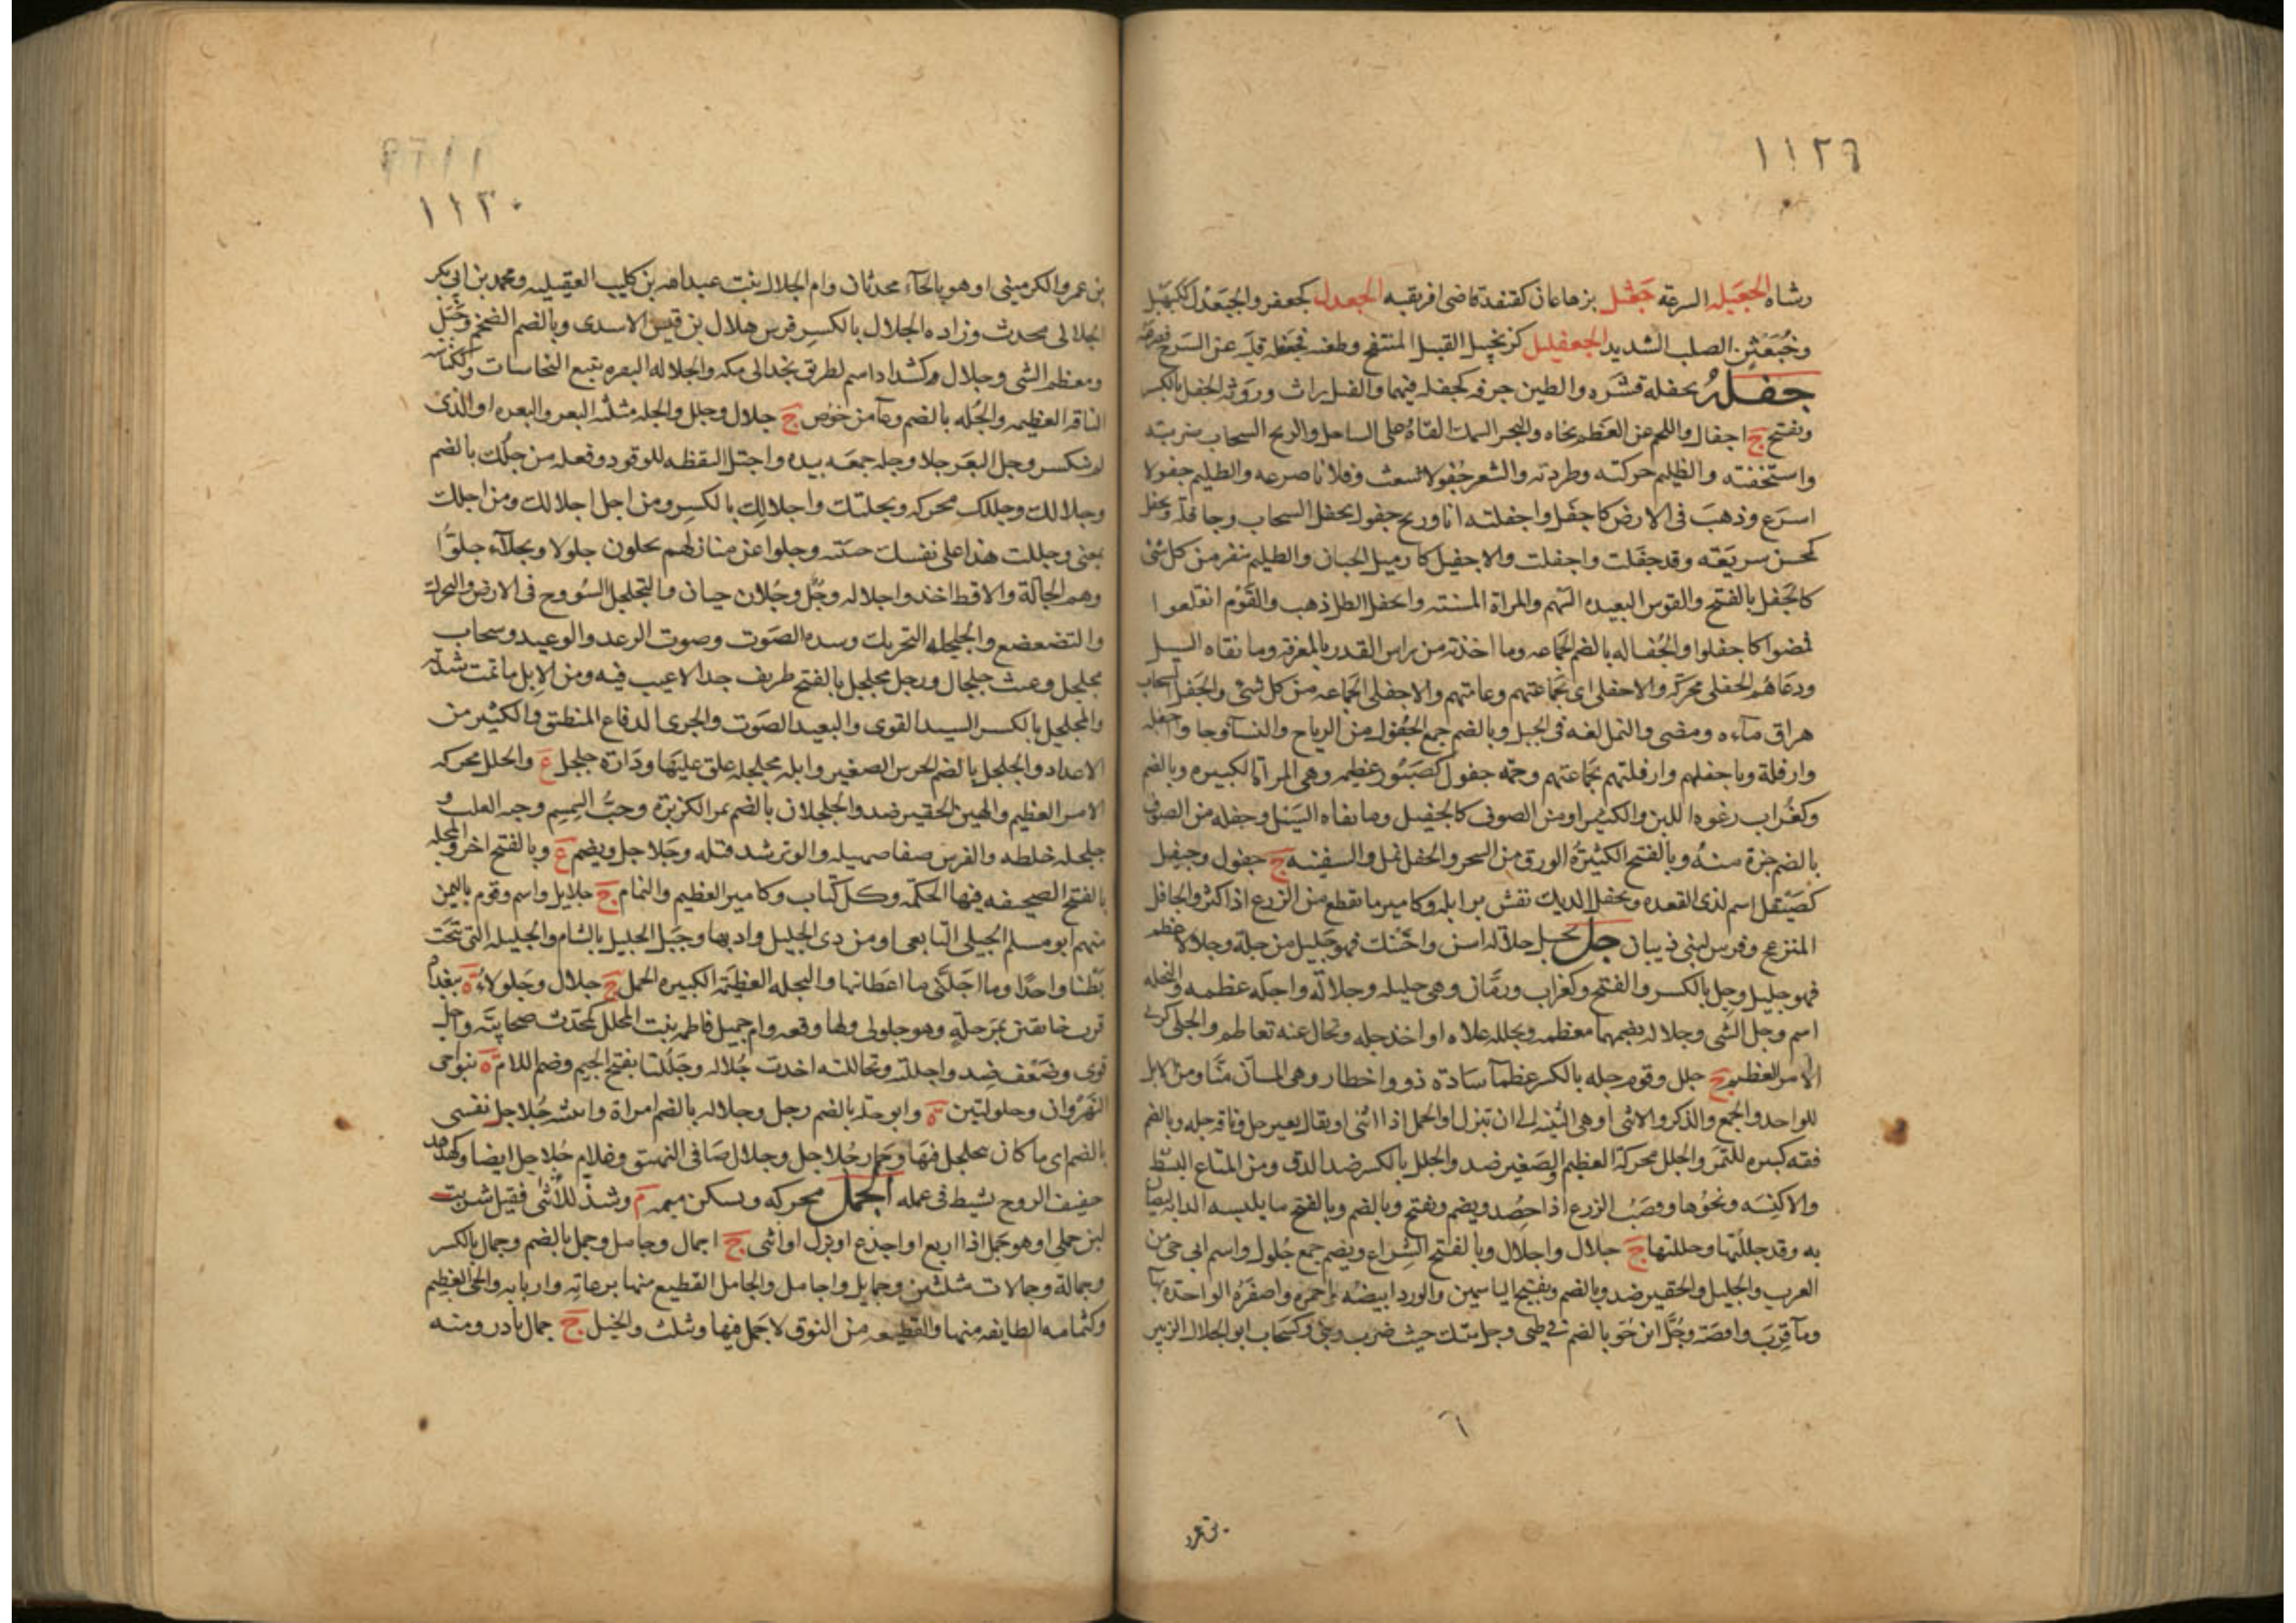 ١١٢٩
وشاه الجعيله السرعة جعثل بن هاعان كقنفذ قاضى افريقيه الجعدل كجعفر والجنعدل ككنهبل
وخبعثن الصلب الشديد الجعفليل كزنجبيل القتيل المنتفخ وطعنه فجعفله قلبه عن السرج فصرعه
جفله يجفله قشره والطين جرفه كجفله فيهما والفيل راث وروثه الجفل بالكسر
وبفتح ج اجفال واللحم عن العظم نحاه والبحر السمك القاه على الساحل والريح السحاب ضربته
واستخفته والظليم حركته وطردته والشعر جفولا شعث وفلانا صرعه والظليم جفولا
اسرع وذهب فى الارض كاجفل واجفلته انا وريح جفول تجفل السحاب وجافلة ومجفل
كمحسن سريعة وقد جفلت واجفلت والاجفيل كازميل الجبان والظليم ينفر من كل شئ
كالجفل بالفتح والقوس البعيده السهم والمراة المسنة وانجفل الظل ذهب والقوم انقلعوا
فمضوا كاجفلوا والجفاله بالضم الجماعه وما اخذته من راس القدر بالمغرفة وما نفاه السيل
ودعاهم الجفلى محركة والاجفلى اى بجماعتهم وعامتهم والاجفلى الجماعه من كل شئ والجفل السحاب
هراق ماءه ومضى والنمل لغه فى الجثل وبالضم جمع الجفول من الرياح والنسا وجاؤا اجفلة
وازفلة وباجفلهم وازفلتهم بجماعتهم وجمه جفول كصبور عظيمه وهى المراة الكبيره وبالضم
وكغراب رغوة اللبن والكثير او من الصوف كالجفيل وما نفاه السيل وجفله من الصوف
بالضم جزة منه وبالفتح الكثيرة الورق من الشجر والجفل نمل والسفينه ج جفول وجيفل
كصيقل اسم لذى القعده وتجفل الديك نفش برايله وكامير ما تقطع من الزرع اذا كثر والجافل
المنزعج وفرس لبنى ذبيان جل يجل جلالة اسن واحتنك فهو جليل من جلة وجلالا عظم
فهو جليل وجل بالكسر والفتح وكغراب ورمان وهى جليله وجلالة واجله عظمه والتجله
اسم وجل الشى وجلاله بضمهما معظمه وتجلله علاه او اخذ جله وتجال عنه تعاظم والجلى كربى
الامر العظيم ج جلل وقوم جله بالكسر عظما سادة ذووا خطار وهى المسان منا ومن الابل
للواحد والجمع والذكر والانثى او هى الثنيه الى ان تبزل او الجمل اذا اثنى او يقال بعير جل وناقه جله وبالضم
قفة كبيره للتمر والجلل محركة العظيم والصغير ضد والجل بالكسر ضد الدق ومن المتاع البسط
والاكسيه ونحوها وقصب الزرع اذا حصد ويضم ويفتح وبالضم وبالفتح ما يلبسه الدابة لتصان
به وقد جللتها وجللتها ج جلال واجلال وبالفتح الشراع ويضم جمع جلول واسم ابى حى من
العرب والجليل والحقير ضد وبالضم وبفتح الياسمين والورد ابيضه واحمره واصفره الواحدة بها
وما قرب واقصة وجل ابن حق بالضم فى طى وجل بيتك حيث ضرب وبنى وكسحاب ابو الجلال الزبير
٦
بن عمرو
١١٣٠
بن عمر والكرمينى او هو بالحاء محدثان وام الجلال بنت عبدالله بن كليب العقيليه ومحمد بن ابى بكر
الجلالى محدث وزاده الجلال بالكسر فرس هلال بن قيس الاسدى وبالضم الضخم وجبل
ومعظم الشى وجلال وكشداد اسم لطريق نجد الى مكه والجلاله البقره تتبع النجاسات وكثمامه
الناقة العظيمه والجله بالضم وعاء من خوص ج جلال وجلل والجله مثلثه البعر والبعره او الذى
لم ينكسر وجل البعر جلا وجله جمعه بيده واجتله التقطه للوقود وفعله من جلك بالضم
وجلالك وجللك محركه وتجلتك واجلالك بالكسر ومن اجل اجلالك ومن اجلك
بمعنى وجللت هذا على نفسك جنيته وجلوا عن منازلهم يجلون جلولا وبجلاء جلوا
وهم الجالة والاقط اخذوا جلاله وجل وجلان حيان والتجلجل السووخ فى الارض والحركة
والتضعضع والجلجله التحريك وشده الصوت وصوت الرعد والوعيد وسحاب
مجلجل وغيث جلجال ورجل مجلجل بالفتح ظريف جدا لاعيب فيه ومن الابل ما تمت شدته
والمجلجل بالكسر السيد القوى والبعيد الصوت والجرى الدفاع المنطيق والكثير من
الاعداد والجلجل بالضم الجرس الصغير وابل مجلجله علق عليها ودارة جلجل ع والجلل محركه
الامر العظيم والهين الحقير ضد والجلجلان بالضم ثمر الكزبرة وحب السمسم وحبة القلب و
جلجله خلطه والفرس صفا صهيله والوتر شد فتله وجلاجل ويضم ع وبالفتح اخر والمجله
بالفتح الصحيفه فيها الحكمه وكل كتاب وكامير العظيم والثمام ج جلايل واسم وقوم باليمن
منهم ابو مسلم الجليلى التابعى او من ذى الجليل واد بها وجبل الجليل بالشام والجليله التى نتجت
بطنا واحدا وما اجلنى ما اعطانيها والنخله العظيمة الكبيره الحمل ج جلال وجلولاء ة ببغداد
قرب خانقين بمرحلة وهو جلولى ولها وقعه وام جميل فاطمه بنت المجلل كمحدث صحابية واجل
قوى وضعف ضد واجللته وتجاللته اخذت جلاله وجللتا بفتح الجيم وضم اللام ة بنواحى
النهروان وجلولتين ة وابو جلة بالضم رجل وجلاله بالضم امراة وابثثته جلاجل نفسى
بالضم اى ما كان يتجلجل فيها وحمار جلاجل وجلال صافى النهيق وغلام جلاجل ايضا وكهدهد
خفيف الروح نشيط فى عمله الجمل محركه ويسكن ميمه م وشذ للانثى فقيل شربت
لبن جملى او هو جمل اذا اربع او اجذع او بزل او اثنى ج اجمال وجامل وجمل بالضم وجمال بالكسر
وجمالة وجمالات مثلثين وجمايل واجامل والجامل القطيع منها برعاته واربابه والحى العظيم
وكثمامه الطايفه منها والقطيعه من النوق لا جمل فيها ويثلث والخيل ج جمال نادر ومنه